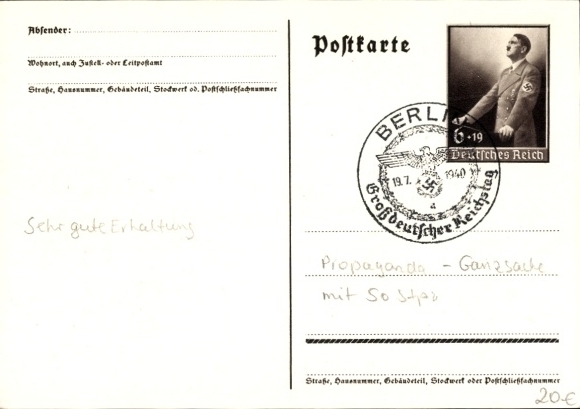 Absender:
Wohnort, auch Zustell- oder Leitpostamt
Straße, Hausnummer, Gebäudeteil, Stockwerk od. Postschließfachnummer
Sehr gute Erhaltung
Postkarte
6+19
Deutsches Reich
BERLIN
19.7. 1940
a
Großdeutscher Reichstag
Propaganda - Ganzsache
mit So Stpl
Straße, Hausnummer, Gebäudeteil, Stockwerk oder Postschließfachnummer
20.-€